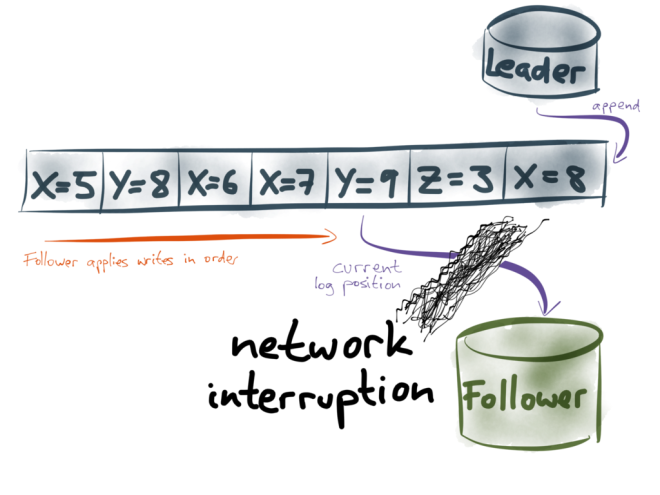 Leader
append
X=5 Y=8 X=6 X=7 Y=9 Z=3 X=8
Follower applies writes in order
current
log position
network
interruption
Follower